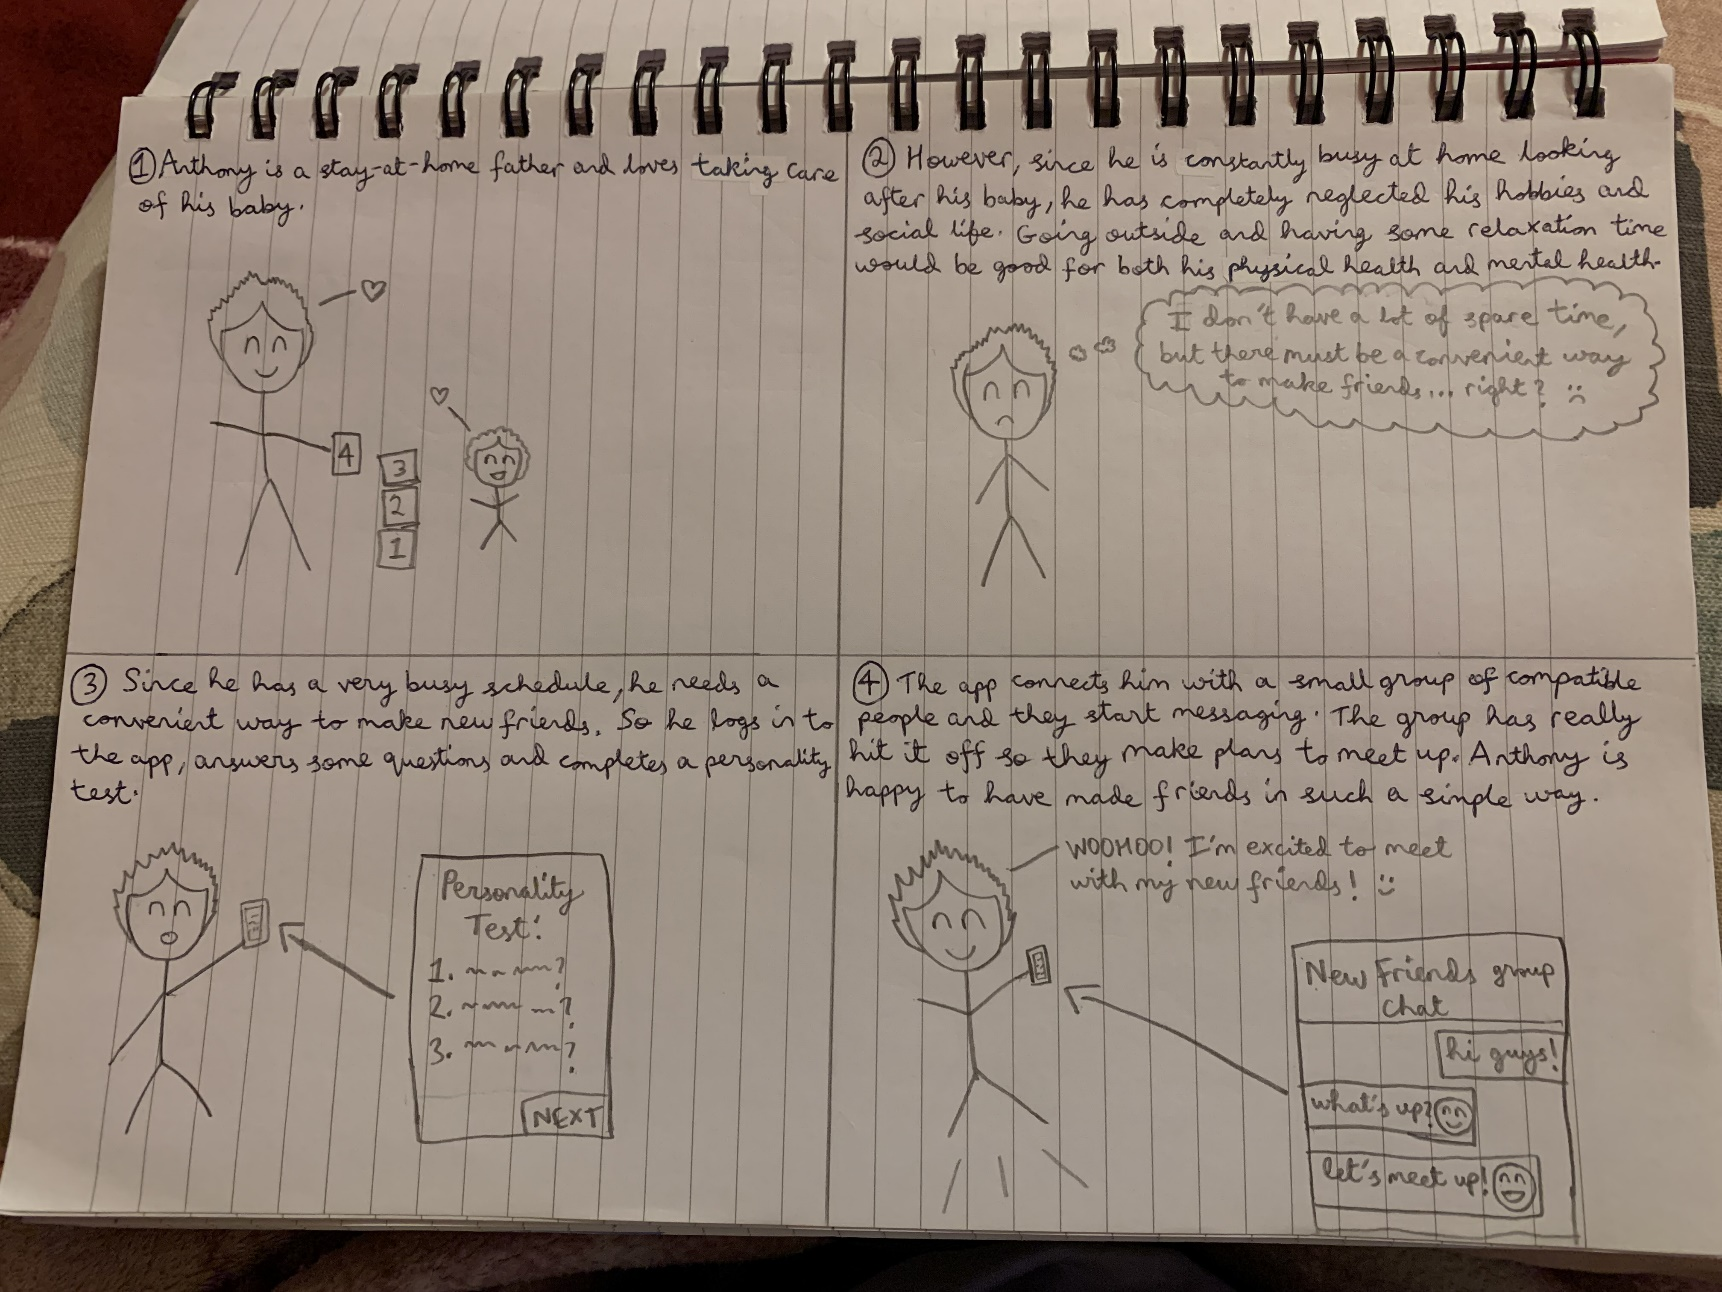 ① Anthony is a stay-at-home father and loves taking care
of his baby.
4
3
2
1
② However, since he is constantly busy at home looking
after his baby, he has completely neglected his hobbies and
social life. Going outside and having some relaxation time
would be good for both his physical health and mental health.
I don't have a lot of spare time,
but there must be a convenient way
to make friends... right? :(
③ Since he has a very busy schedule, he needs a
convenient way to make new friends. So he logs in to
the app, answers some questions and completes a personality
test.
Personality
Test:
1. ?
2. ?
3. ?
NEXT
④ The app connects him with a small group of compatible
people and they start messaging. The group has really
hit it off so they make plans to meet up. Anthony is
happy to have made friends in such a simple way.
WOOHOO! I'm excited to meet
with my new friends! :)
New Friends group
chat
hi guys!
what's up?
let's meet up!